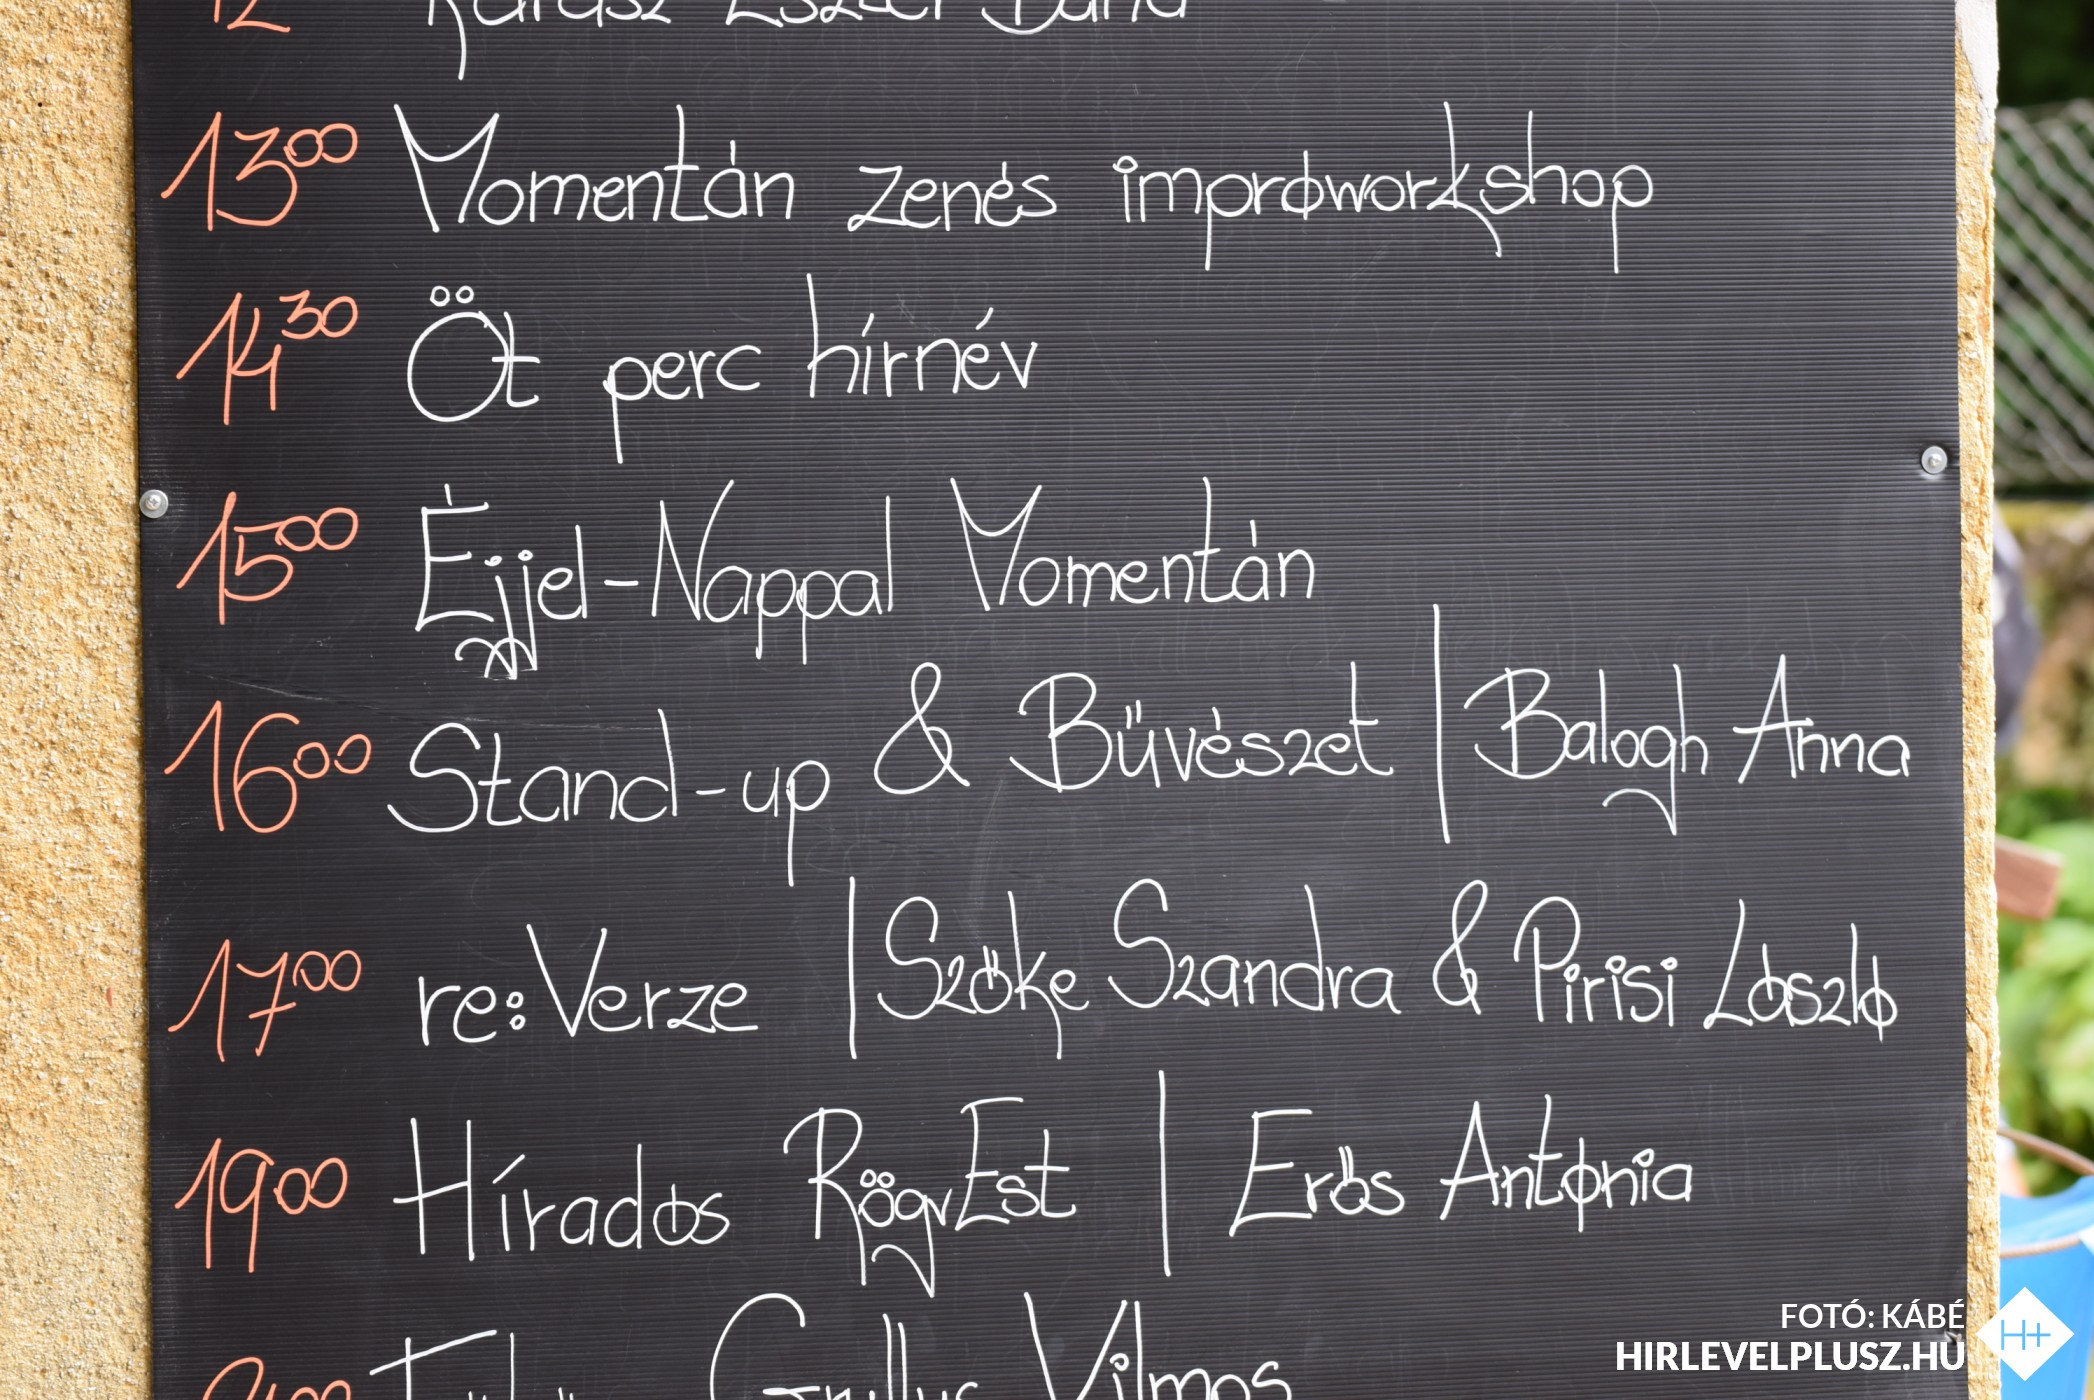 12 Karász Eszter Band
13⁰⁰ Momentán zenés improworkshop
14³⁰ Öt perc hírnév
15⁰⁰ Éjjel-Nappal Momentán
16⁰⁰ Stand-up & Bűvészet | Balogh Anna
17⁰⁰ re:Verze | Szőke Szandra & Pirisi László
19⁰⁰ Híradós RögvEst | Erős Antónia
Gryllus Vilmos
FOTÓ: KÁBÉ
HIRLEVELPLUSZ.HU
H+